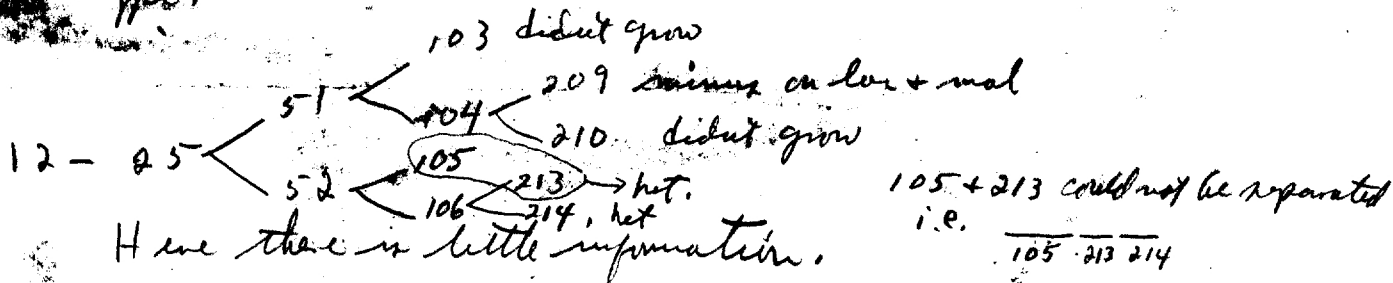 103 didn't grow
51 209 minus on lac + mal
104
210 didn't grow
12 - 25
105
52 213 het.
106 214, het
105 + 213 could not be separated
i.e.
105 213 214
Here there is little information.